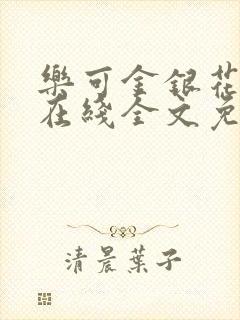 樂可金銀花
在綫全文免
清晨葉子